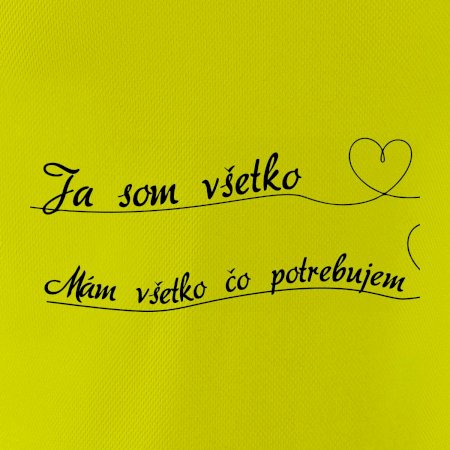 Ja som všetko
Mám všetko čo potrebujem